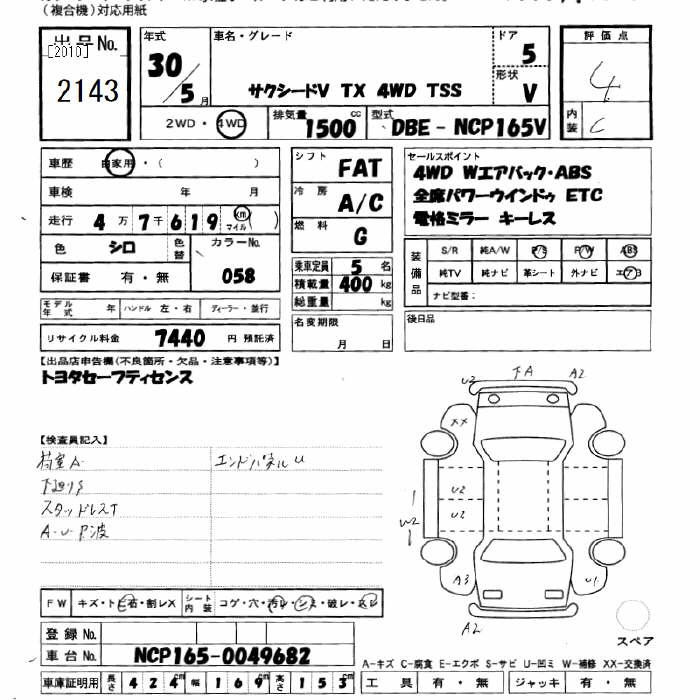 (複合機)対応用紙
出品No.
[2010]
2143
年式
30/5月
車名・グレード
サクシードV TX 4WD TSS
ドア
5
形状
V
評価点
4
内装
C
2WD・4WD
排気量
1500cc
型式
DBE-NCP165V
車歴
自家用・( )
車検 年 月
走行 4万7千619km(マイル)
色 シロ
色替
カラーNo.
058
保証書 有・無
モデル年式 年
ハンドル 左・右
ディーラー・並行
リサイクル料金 7440 円 預託済
シフト FAT
冷房 A/C
燃料 G
乗車定員 5名
積載量 400kg
総重量 kg
名変期限
月 日
セールスポイント
4WD Wエアバック・ABS
全席パワーウインドゥ ETC
電格ミラー キーレス
装備品
S/R 純A/W P/S P/W ABS
純TV 純ナビ 革シート 外ナビ エアB
ナビ型番:
後日品
【出品店申告欄(不良箇所・欠品・注意事項等)】
トヨタセーフティセンス
【検査員記入】
荷室A エンドパネルU
下廻りS
スタッドレスT
A・U・P波
U2 FA A2
XX
U2
U2
W2
A3 U1
A2
スペア
FW キズ・トビ石・割レX
シート内装 コゲ・穴・汚レ・シミ・破レ・スレ
登録No.
車台No. NCP165-0049682
A-キズ C-腐食 E-エクボ S-サビ U-凹ミ W-補修 XX-交換済
車庫証明用 長さ 424cm 幅 169cm 高さ 153cm
工具 有・無 ジャッキ 有・無